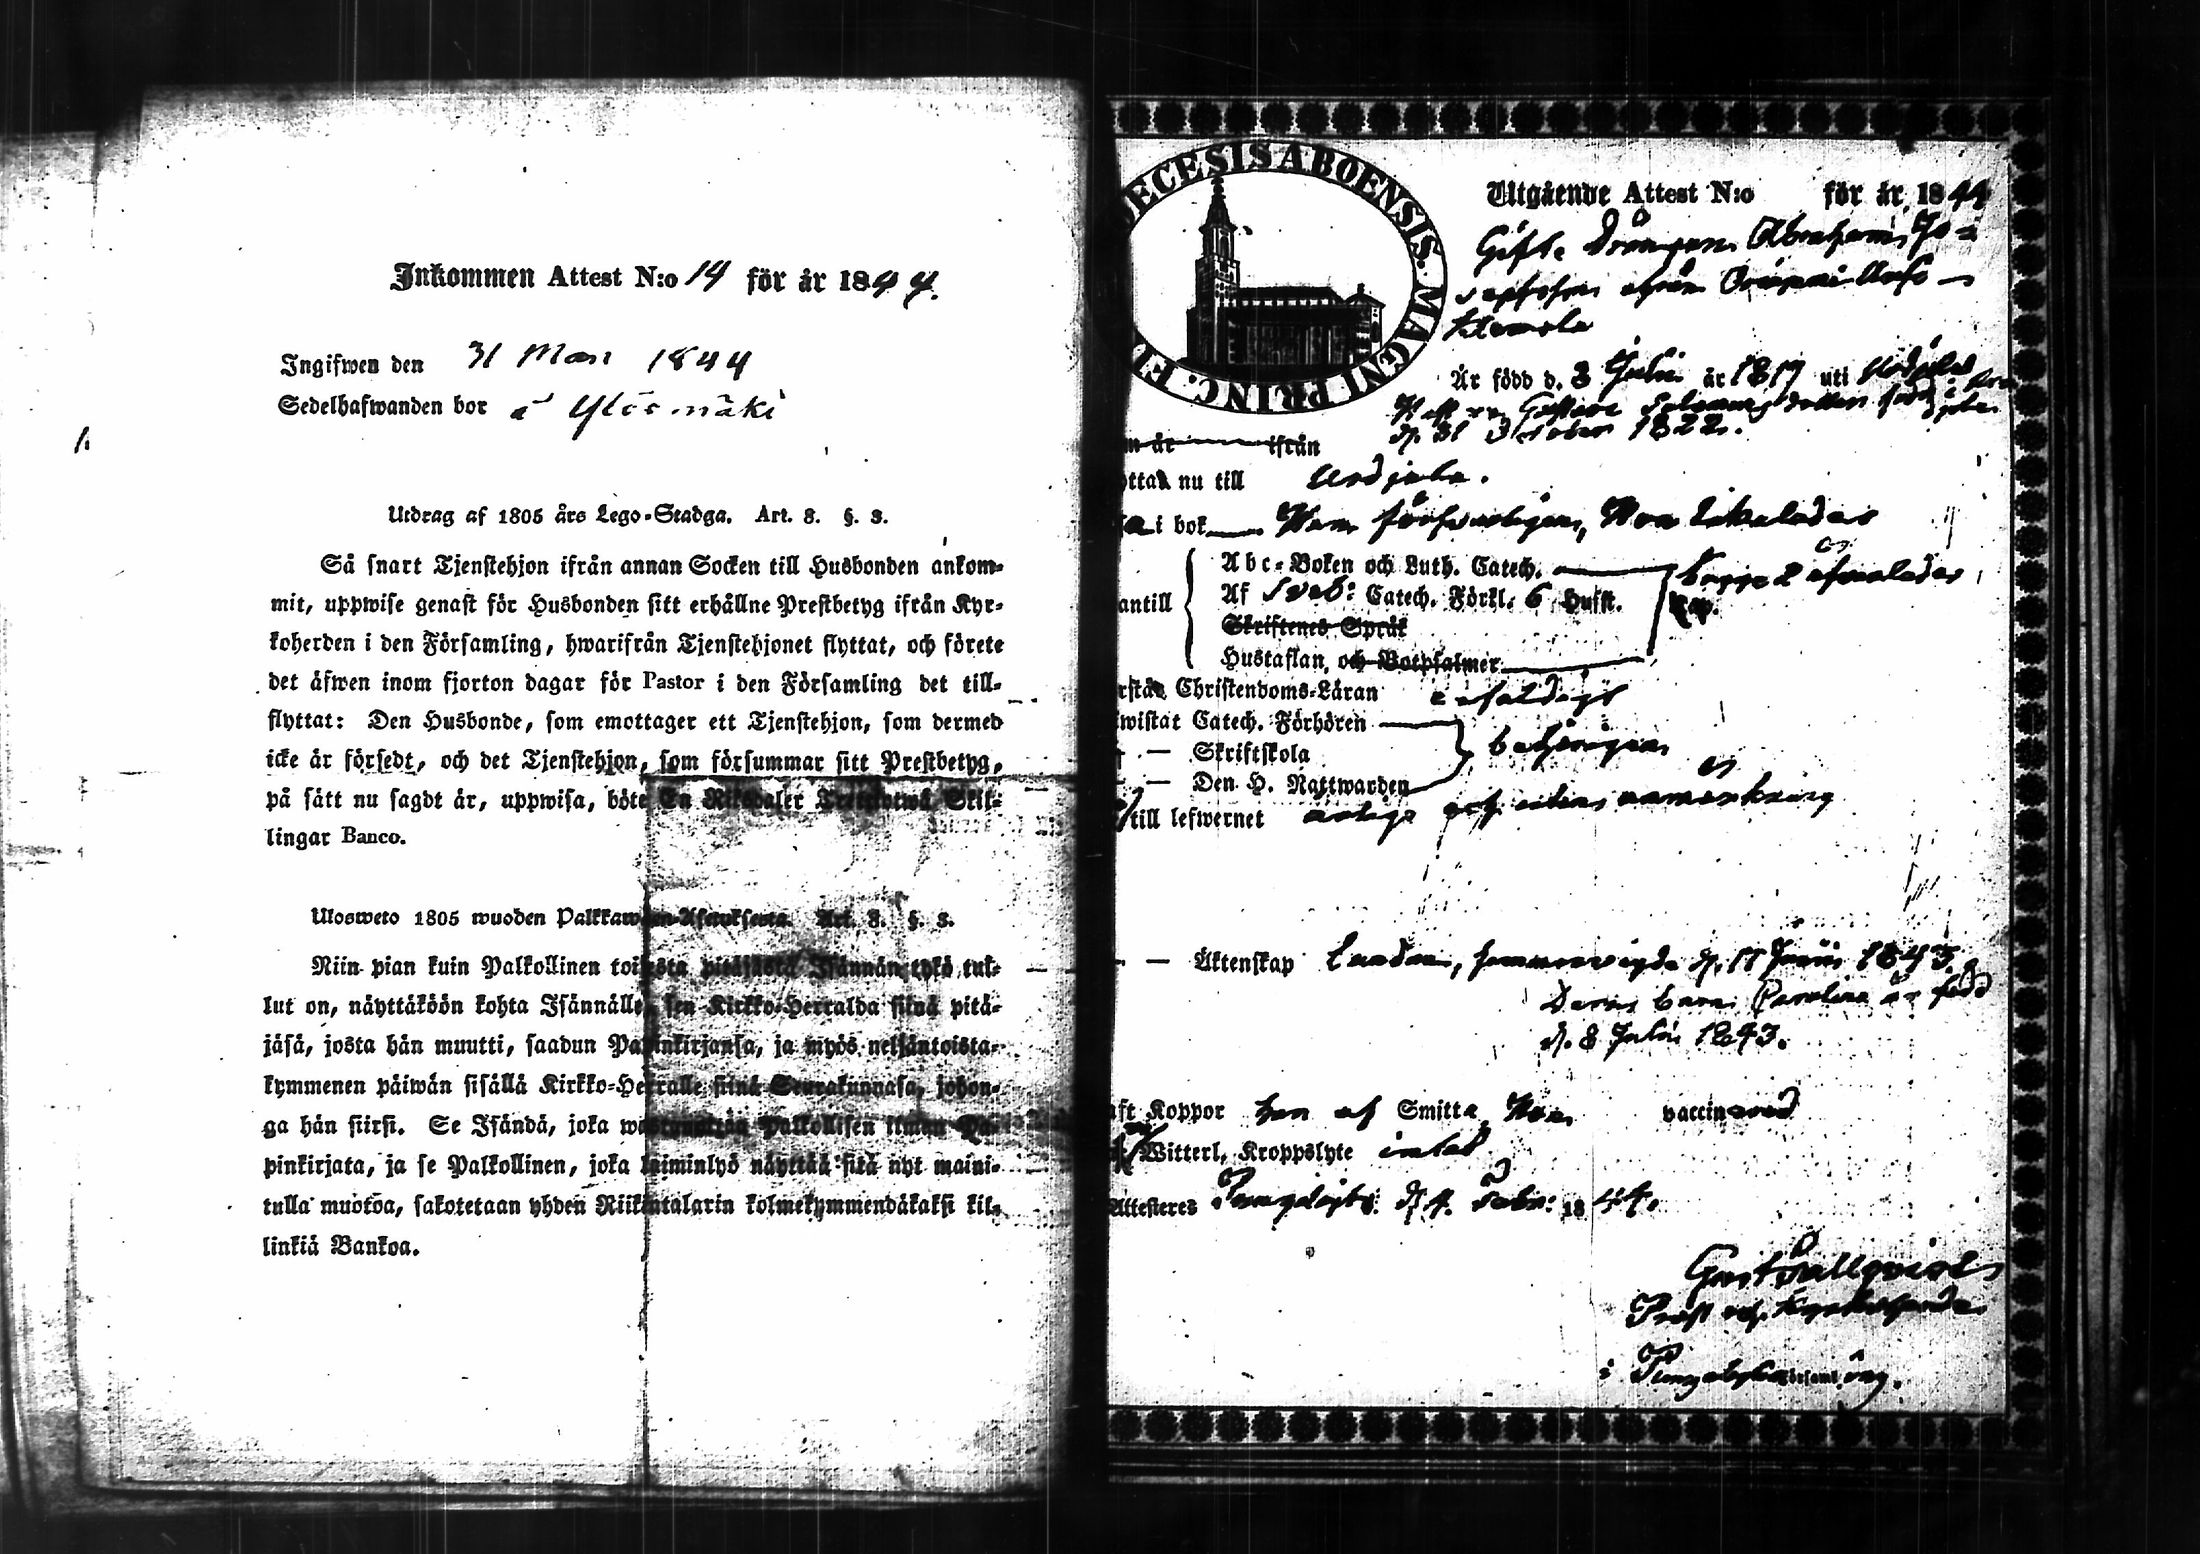 Inkommen Attest N:o 14 för år 1844.
Ingifwen den 31 Mars 1844
Sedelhafwanden bor å Ylismäki
Utdrag af 1805 års Lego-Stadga. Art. 8. §. 3.
Så snart Tjenstehjon ifrån annan Socken till Husbonden ankom-
mit, uppwise genast för Husbonden sitt erhållne Prestbetyg ifrån Kyr-
koherden i den Församling, hwarifrån Tjenstehjonet flyttat, och förete
det äfwen inom fjorton dagar för Pastor i den Församling det till-
flyttat: Den Husbonde, som emottager ett Tjenstehjon, som dermed
icke är försedt, och det Tjenstehjon, som försummar sitt Prestbetyg,
på sätt nu sagdt är, uppwisa, böte En Riksdaler Trettiotwå Skil-
lingar Banco.
Ulosweto 1805 wuoden Palkkawäen-Asetuksesta. Art. 8. §. 3.
Niin pian kuin Palkollinen toisesta pitäjästä Isännän tykö tul-
lut on, näyttäköön kohta Isännälle, sen Kirkko-Herralda siinä pitä-
jäsä, josta hän muutti, saadun Papinkirjansa, ja myös neljäntoista-
kymmenen päiwän sisällä Kirkko-Herralle siinä Seurakunnasa, johon-
ga hän siirsi. Se Isändä, joka wastanottaa Palkollisen ilman Pa-
pinkirjata, ja se Palkollinen, joka laiminlyö näyttää sitä nyt maini-
tulla muotoa, sakotetaan yhden Riikintalarin kolmekymmendäkaksi kil-
linkiä Bankoa.
DIOECESIS ABOENSIS. MAGNI PRINC. F
Utgående Attest N:o för år 1844
Gifte Drängen Abraham Jo-
sephsson ifrån
Är född d. 3 Julii år 1817 uti Urdjala
Hust
d. 31 October 1822.
m år ifrån
yttar nu till Urdjala.
a i bok Han försvarligen, Hon
Abc-Boken och Luth. Catech. begge
antill Af Sveb: Catech. Förkl. 6 Hufst. Kap.
Skriftenes Språk
Hustaflan, och Botpsalmer
rstår Christendoms-Läran enfaldigt
wistat Catech. Förhören
— Skriftskola behörigen
— Den H. Nattwarden
till lefwernet ärliga och utan anmärkning
— — Äktenskap bundne, sammanvigde d. 17 Junii 1843.
Deras barn Carolina är född
d. 8 Julii 1843.
aft Koppor han af Smitta, Hon vaccinerad
Witterl. Kroppslyte intet
Attesteres Pungalaitio d. 4 Febr: 1844.
Gust Wallqvist
Prost och Kyrkoherde
i församling.